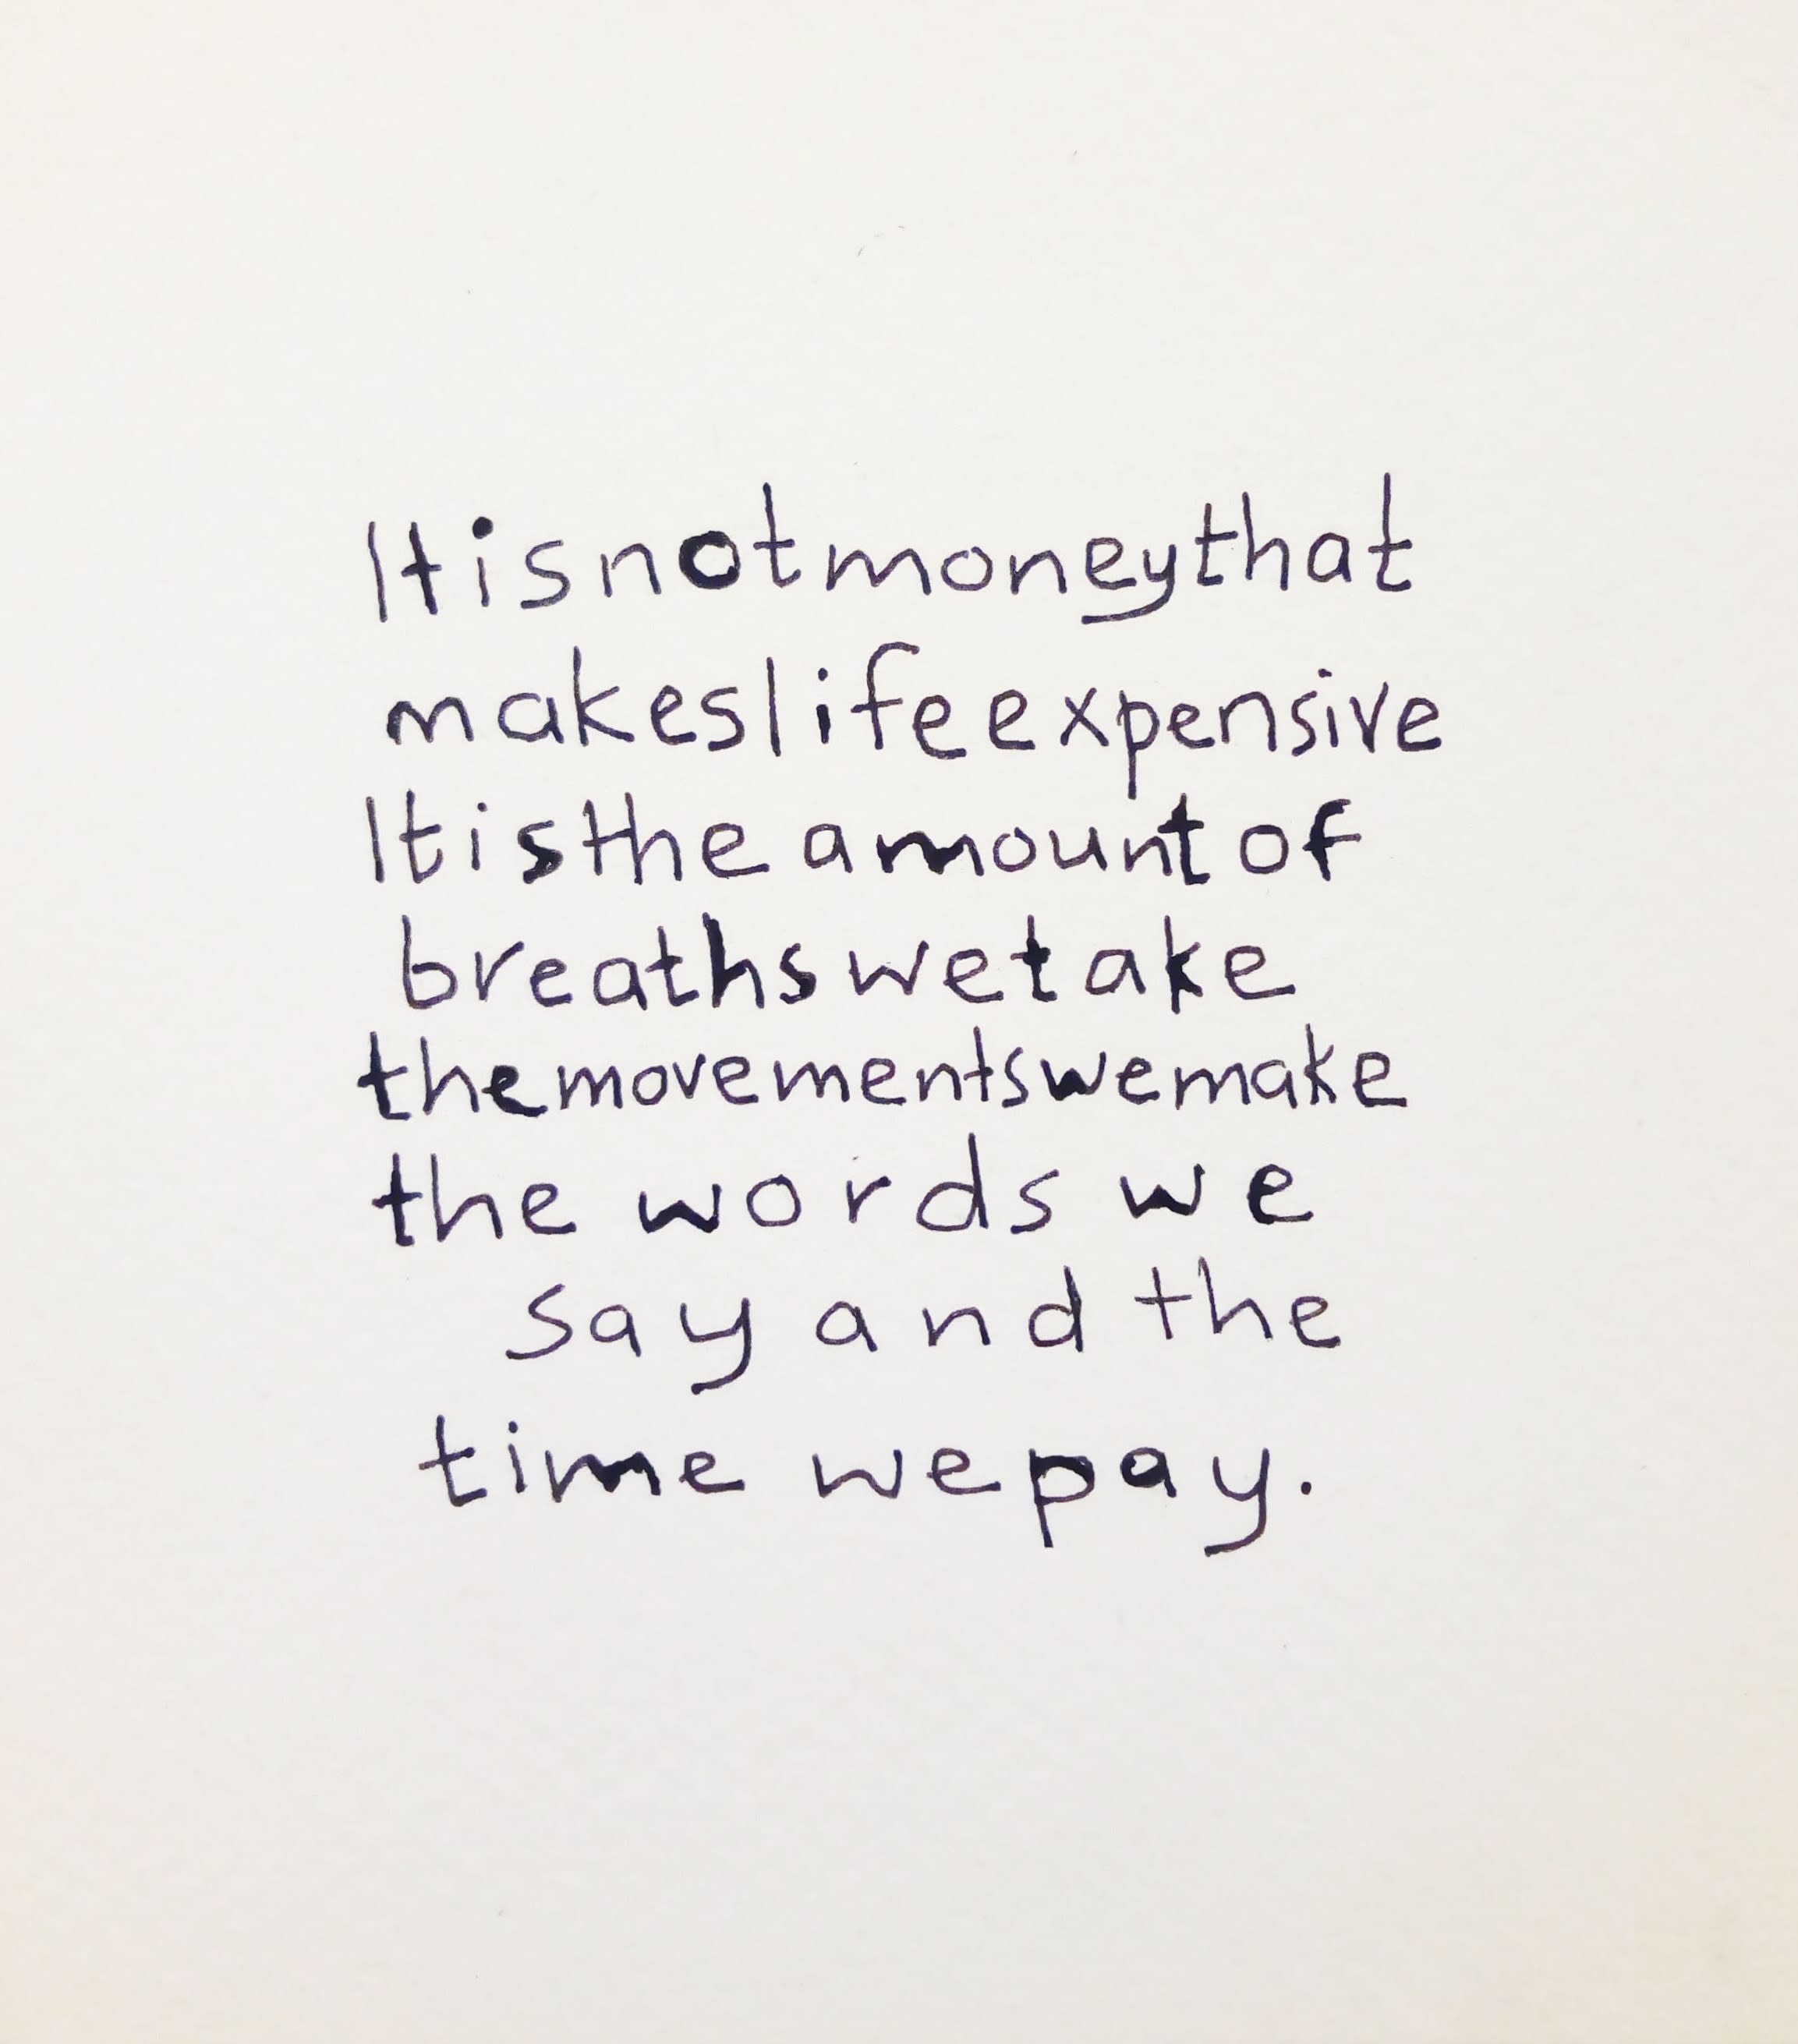 It is not money that
makes life expensive
It is the amount of
breaths we take
the movements we make
the words we
say and the
time we pay.